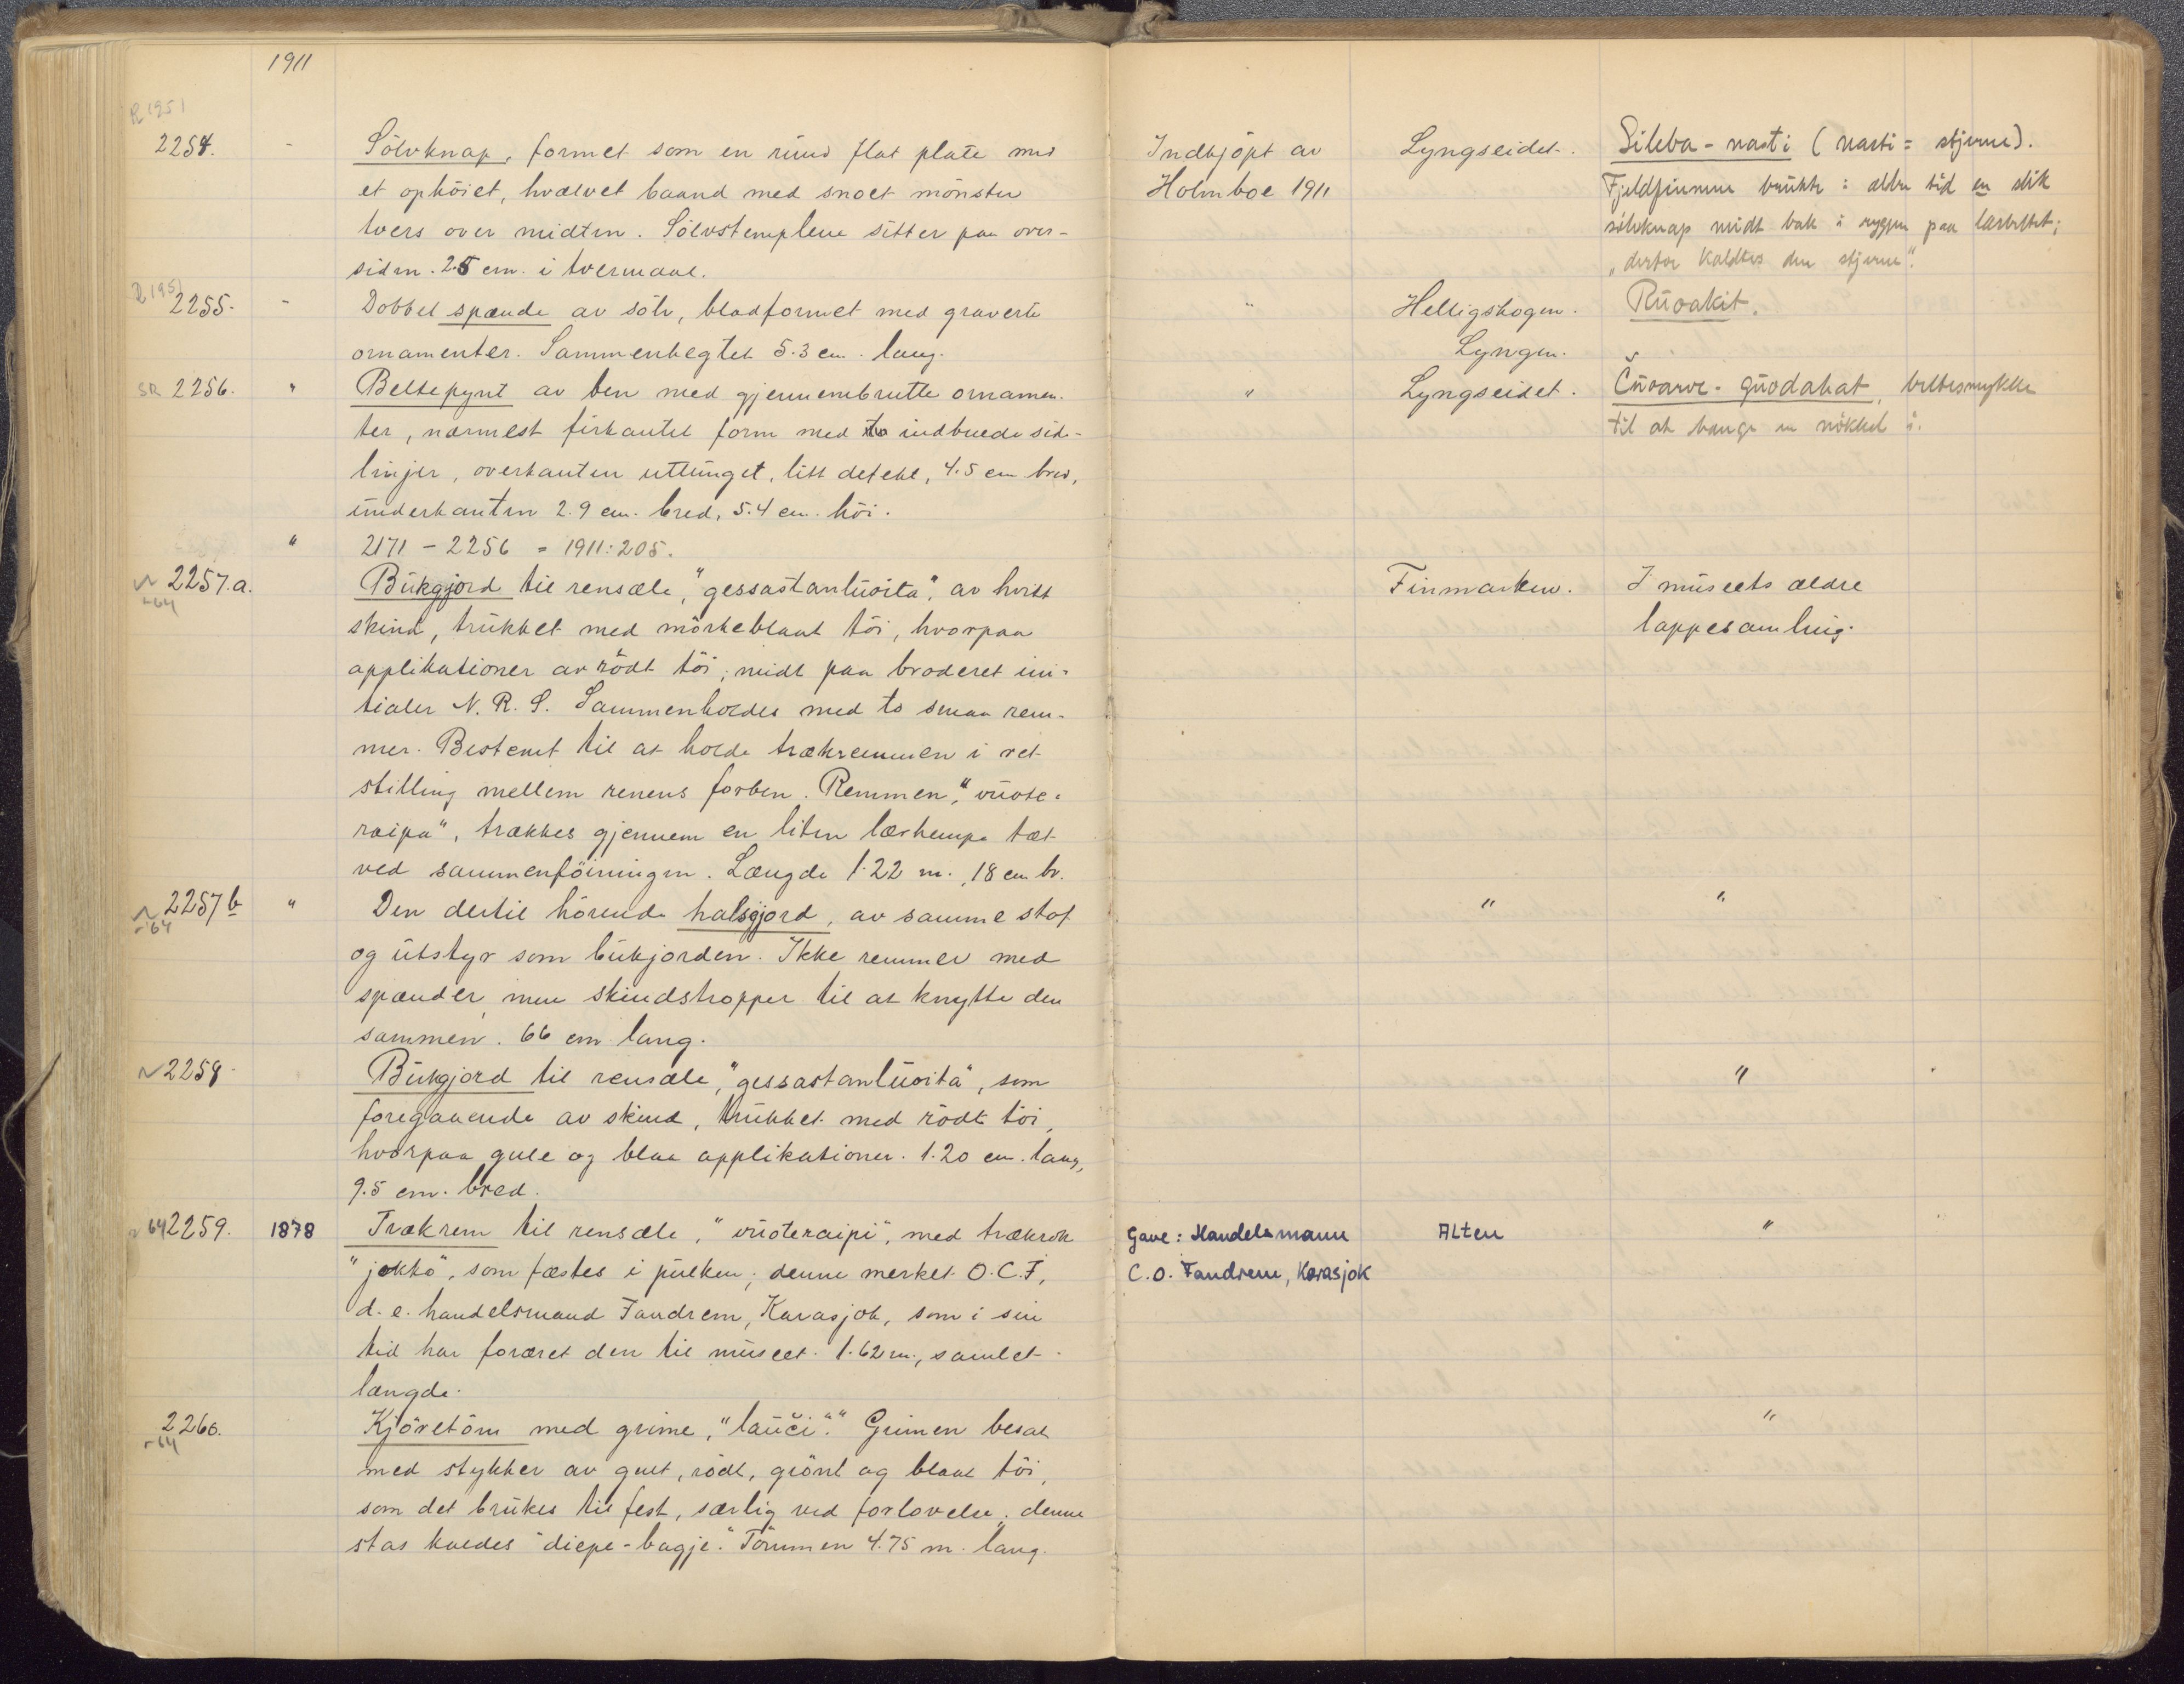 1911
R 1951
2254. - Sölvknap, formet som en rund flat plate med
et ophöiet, hvælvet baand med snoet mönster
tvers over midten. Sölvstemplene sitter paa over-
siden. 2.5 cm. i tvermaal.
Indkjöpt av
Holmboe 1911
Lyngseidet.
Sileba-nasti (nasti = stjerne).
Fjeldfinnene brukte i ældre tid en slik
sölvknap midt bak i ryggen paa
"derfor kaldtes den stjerne".
R 1951
2255. - Dobbel spænde av sölv, bladformet med graverte
ornamenter. Sammenhegtet 5.3 cm. lang.
"
Helligskogen.
Lyngen.
Ruvakit.
SR 2256. " Beltepynt av ben med gjennembrutte ornamen-
ter, nærmest firkantet form med to indbuede side-
linjer, overkanten uttunget, litt defekt, 4.5 cm bred,
underkanten 2.9 cm. bred, 5.4 cm. höi.
"
Lyngseidet.
Čuvarve-guodahat, beltesmykke
til at henge en nökkel i.
" 2171 - 2256 = 1911:205.
N 2257.a.
-64
Bukgjord til rensæle, "gessastantuoita", av hvitt
skind, trukket med mörkeblaat töi, hvorpaa
applikationer av rödt töi; midt paa broderet ini-
tialer N. R. S. Sammenholdes med to smaa rem-
mer. Bestemt til at holde trækremmen i ret
stilling mellem renens forben. Remmen, "vuote-
raipa", trækkes gjennem en liten lærhempe tæt
ved sammenföiningen. Længde 1.22 m., 18 cm br.
Finmarken.
I museets ældre
lappesamling.
N 2257 b
-64
" Den dertil hörende halsgjord, av samme stof
og utstyr som bukjorden. Ikke remmer med
spænder, men skindstropper til at knytte den
sammen. 66 cm lang.
" "
N 2258. Bukgjord til rensæle, "gessastantuoita", som
foregaaende av skind, trukket med rödt töi,
hvorpaa gule og blaa applikationer. 1.20 cm. lang,
9.5 cm. bred.
"
N 64 2259. 1878 Trækrem til rensæle, "vuoteraipi", med trækrok
"jokto", som fæstes i pulken; denne merket O.C.F,
d. e. handelsmand Fandrem, Karasjok, som i sin
tid har foræret den til museet. 1.62 m., samlet
længde.
Gave: Handelsmann
C.O. Fandrem, Karasjok
Alten
"
2260.
-64
Kjöretöm med grime, "lauči". Grimen besat
med stykker av gult, rödt, grönt og blaat töi,
som det brukes til fest, særlig ved forlovelse; denne
stas kaldes "diepe-bagje". Tömmen 4.75 m. lang.
"